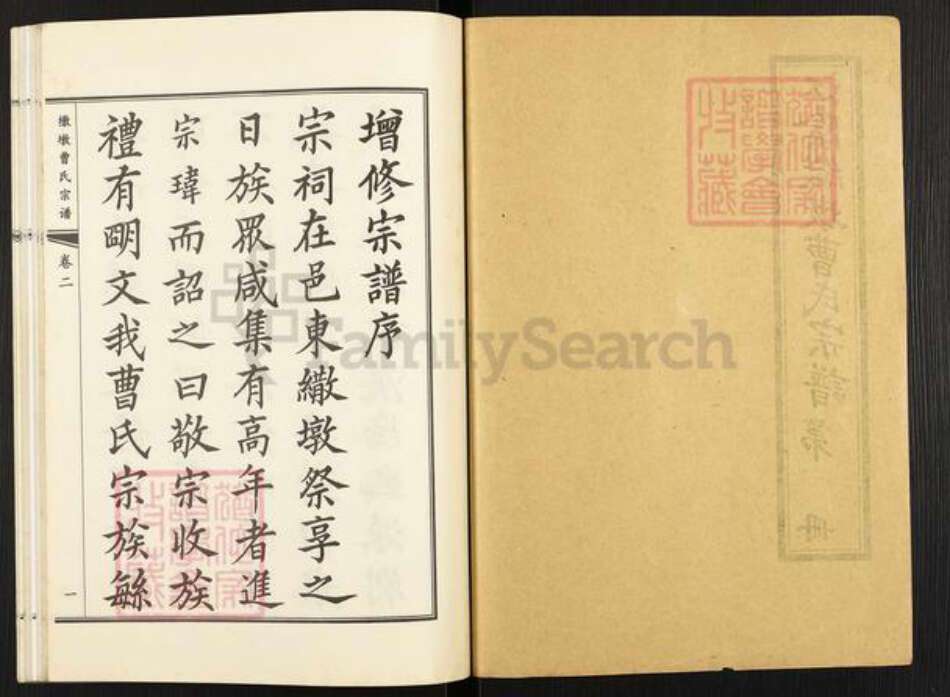 增修宗譜序
宗祠在邑東繖墩祭享之
日族眾咸集有高年者進
宗瑋而詔之曰敬宗收族
禮有明文我曹氏宗族繇
繖墩曹氏宗譜
卷二
一
曹氏宗譜第
冊
FamilySearch